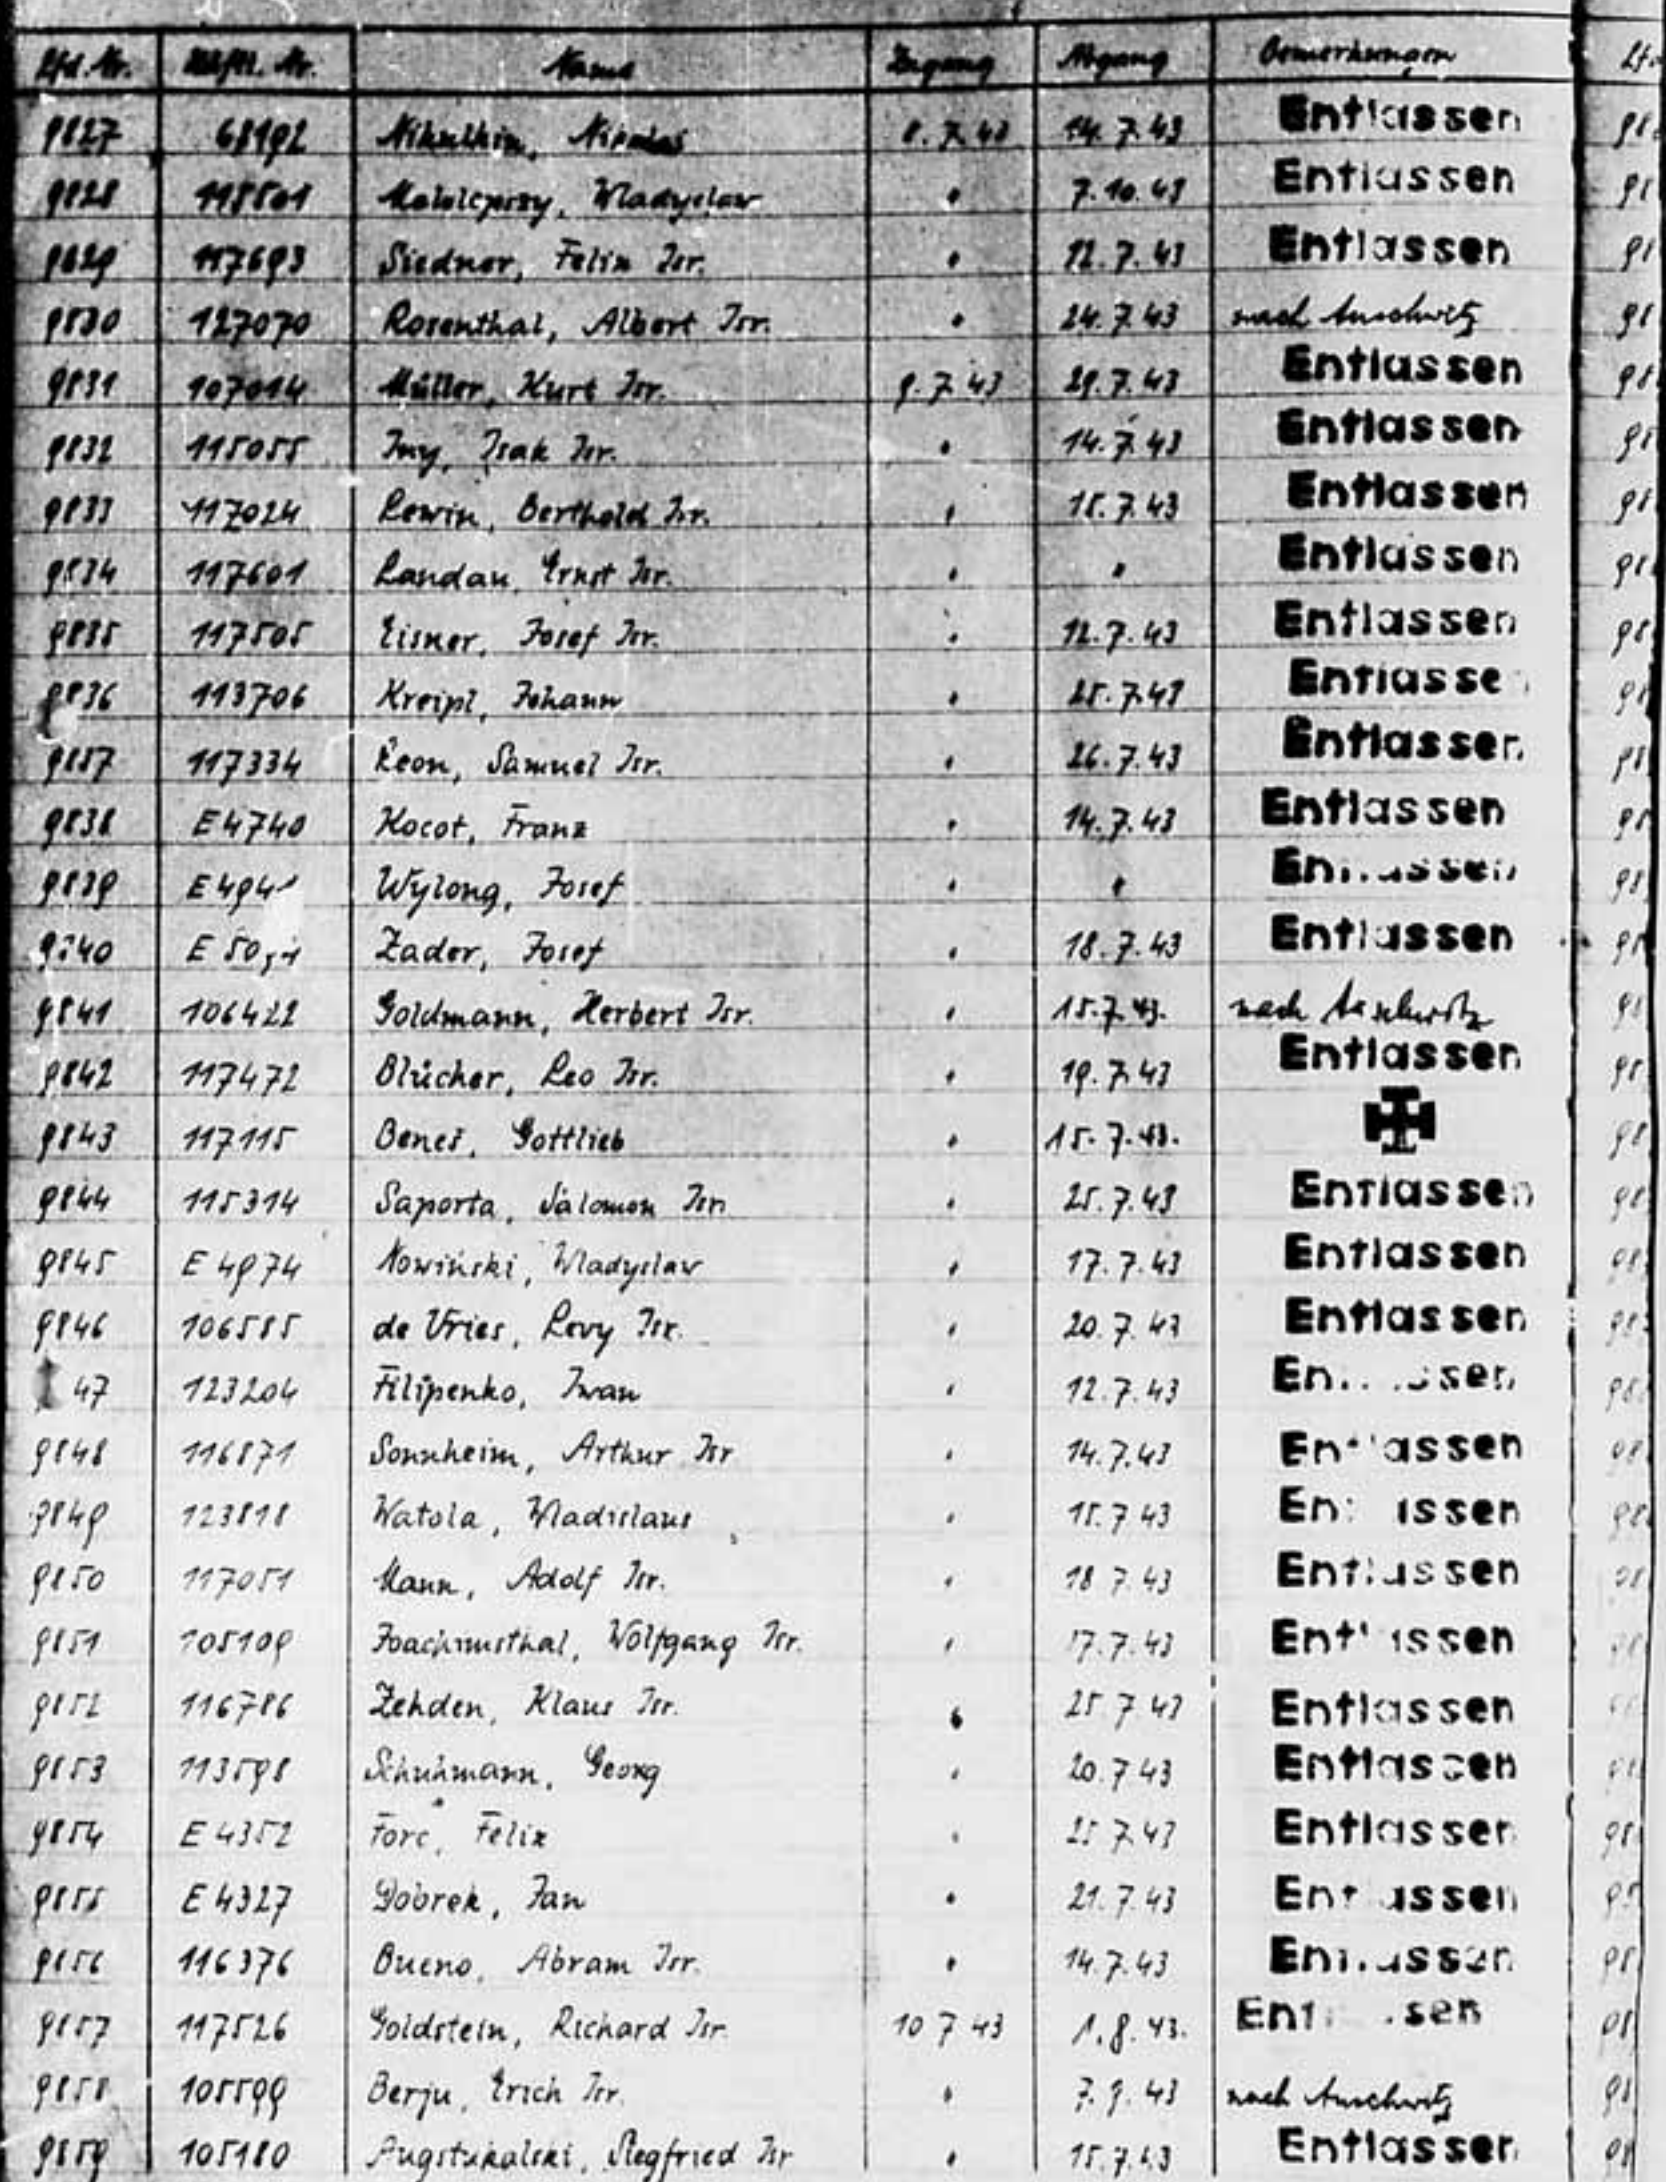 Lfd. Nr. Häftl. Nr. Name Zugang Abgang Bemerkungen
9827 68192 8.7.43 14.7.43 Entlassen
9828 118501 Wladyslaw " 7.10.43 Entlassen
9829 117693 Siedner, Felix Isr. " 12.7.43 Entlassen
9830 127070 Rosenthal, Albert Isr. " 24.7.43 nach Auschwitz
9831 107014 Müller, Kurt Isr. 9.7.43 29.7.43 Entlassen
9832 115055 Isak Isr. " 14.7.43 Entlassen
9833 117024 Lewin, Berthold Isr. " 15.7.43 Entlassen
9834 117601 Landau, Ernst Isr. " " Entlassen
9835 117505 Eisner, Josef Isr. " 12.7.43 Entlassen
9836 113706 Kreipl, Johann " 25.7.43 Entlassen
9837 117334 Leon, Samuel Isr. " 26.7.43 Entlassen
9838 E 4740 Kocot, Franz " 14.7.43 Entlassen
9839 Wylong, Josef " " Entlassen
9840 Zader, Josef " 18.7.43 Entlassen
9841 106422 Goldmann, Herbert Isr. " 15.7.43. nach Auschwitz
9842 117472 Blücher, Leo Isr. " 19.7.43 Entlassen
9843 117115 Beneš, Gottlieb " 15.7.43.
9844 115314 Saporta, Salomon Isr. " 25.7.43 Entlassen
9845 E 4974 Nowiński, Wladyslaw " 17.7.43 Entlassen
9846 106585 de Vries, Levy Isr. " 20.7.43 Entlassen
47 123204 Filipenko, Iwan " 12.7.43 Entlassen
9848 116871 Sonnheim, Arthur Isr " 14.7.43 Entlassen
9849 123818 Watola, Wladislaus " 15.7.43 Entlassen
9850 117051 Mann, Adolf Isr. " 18.7.43 Entlassen
9851 105109 Joachimsthal, Wolfgang Isr. " 17.7.43 Entlassen
9852 116786 Zehden, Klaus Isr. " 25.7.43 Entlassen
9853 113598 Schuhmann, Georg " 20.7.43 Entlassen
9854 E 4352 Forc, Felix " 25.7.43 Entlassen
9855 E 4327 Dobrek, Jan " 21.7.43 Entlassen
9856 116376 Bueno, Abram Isr. " 14.7.43 Entlassen
9857 117526 Goldstein, Richard Isr. 10 7 43 1.8.43. Entlassen
9858 105599 Berju, Erich Isr. " 7.9.43 nach Auschwitz
9859 105180 Siegfried Isr " 15.7.43 Entlassen